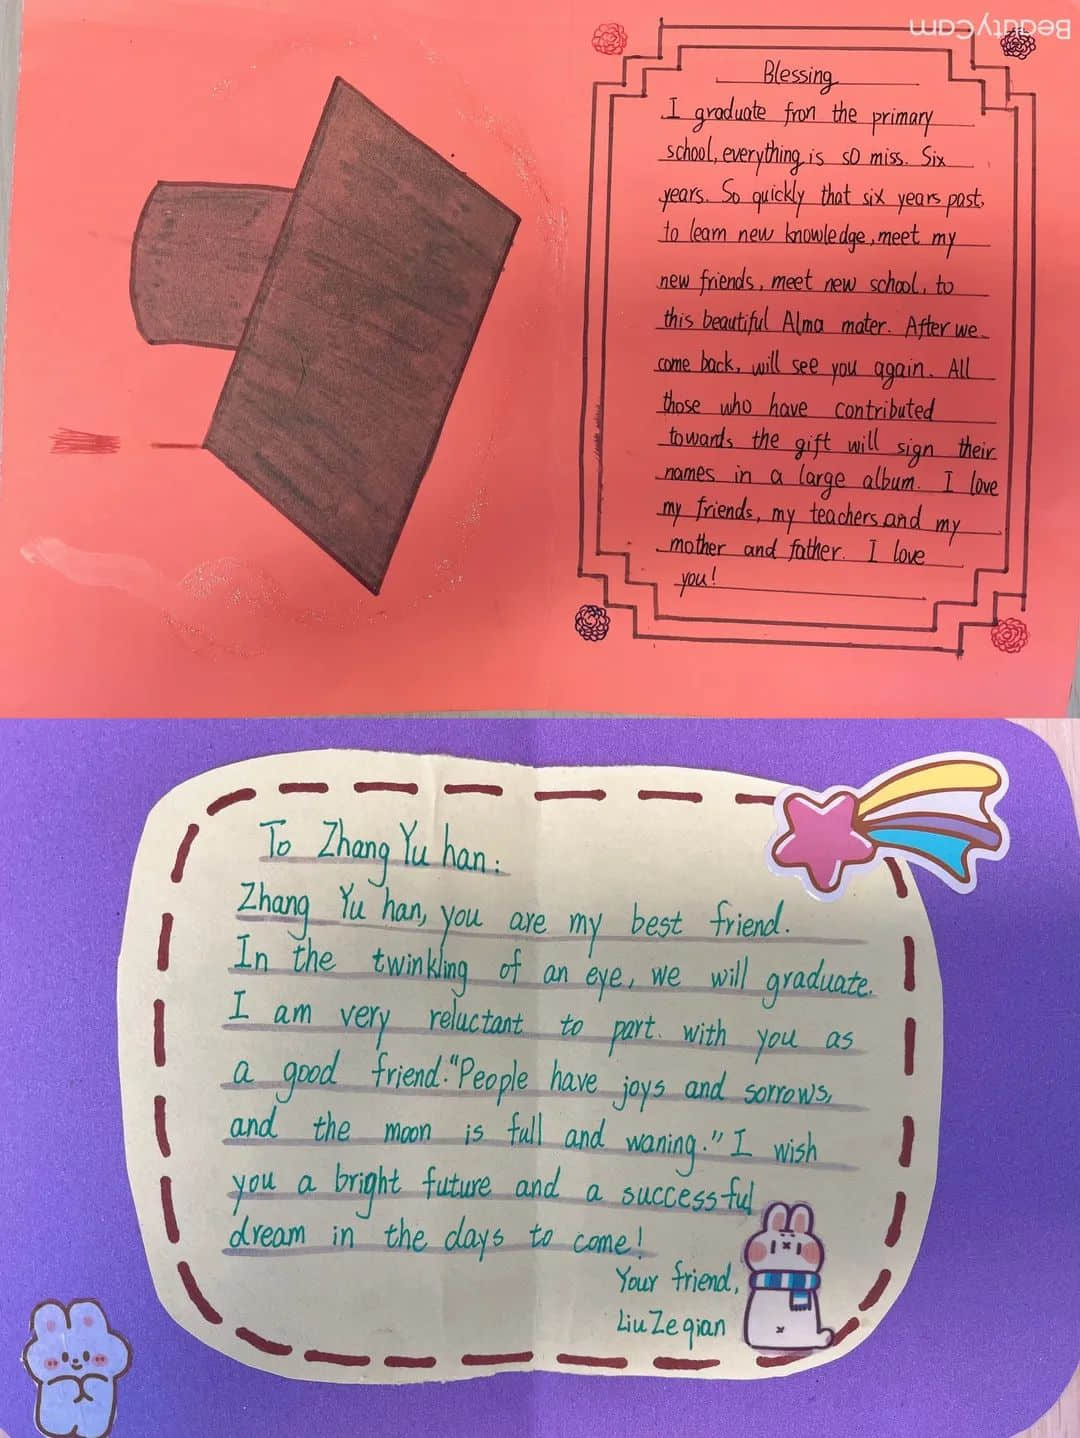 BeautyCam
Blessing
I graduate fron the primary
school, everything is so miss. Six
years. So quickly that six years past,
to learn new knowledge, meet my
new friends, meet new school, to
this beautiful Alma mater. After we
come back, will see you again. All
those who have contributed
towards the gift will sign their
names in a large album. I love
my friends, my teachers and my
mother and father. I love
you!
To Zhang Yu han:
Zhang Yu han, you are my best friend.
In the twinkling of an eye, we will graduate.
I am very reluctant to part. with you as
a good friend. "People have joys and sorrows,
and the moon is full and waning." I wish
you a bright future and a successful
dream in the days to come!
Your friend,
Liu Ze qian